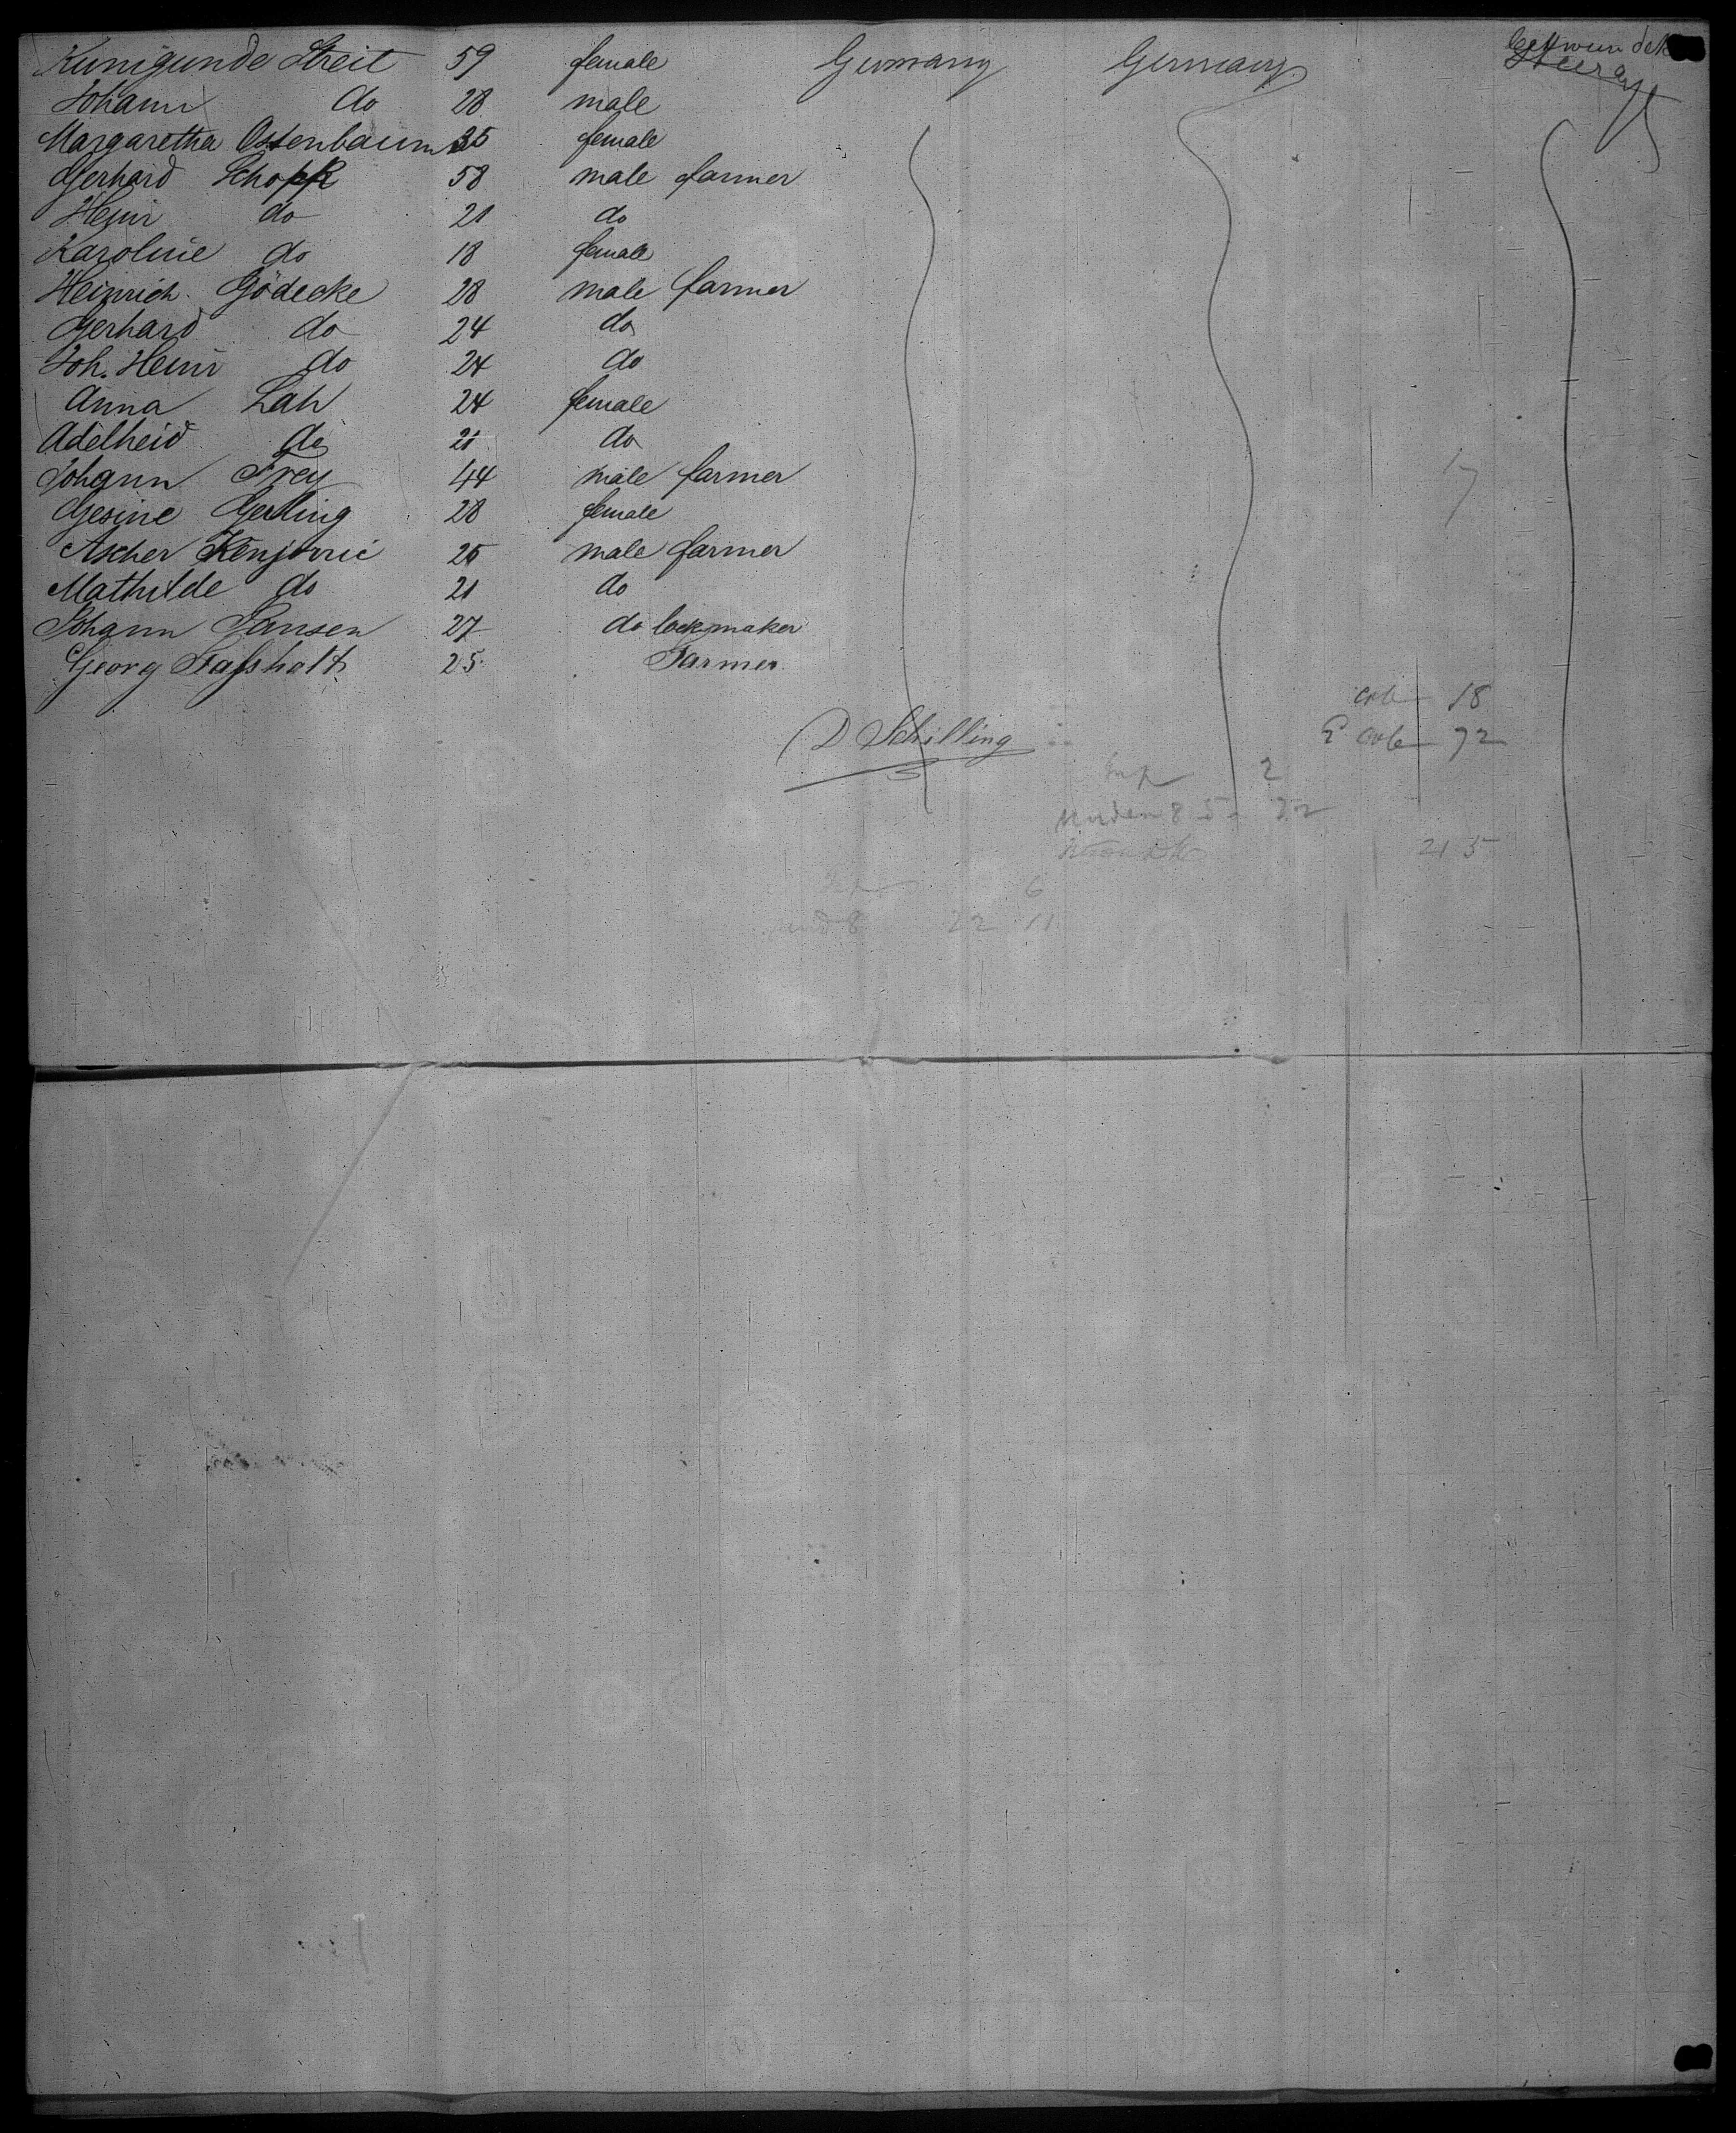 Kunigunde Streit 59 female Germany Germany
Johann do 28 male
Margaretha Ostenbaum 35 female
Gerhard Schopp 58 male farmer
Heinr do 21 do
Karoline do 18 female
Heinrich Gödecke 28 male farmer
Gerhard do 24 do
Joh. Heinr do 24 do
Anna Lah 24 female
Adelheid do 21 do
Johann Frey 44 male farmer
Gesine Gerling 28 female
Ascher 25 male farmer
Mathilde do 21 do
Johann Jansen 27 do lockmaker
Georg 25 Farmer
18
D Schilling 72
2
215
6
22 11